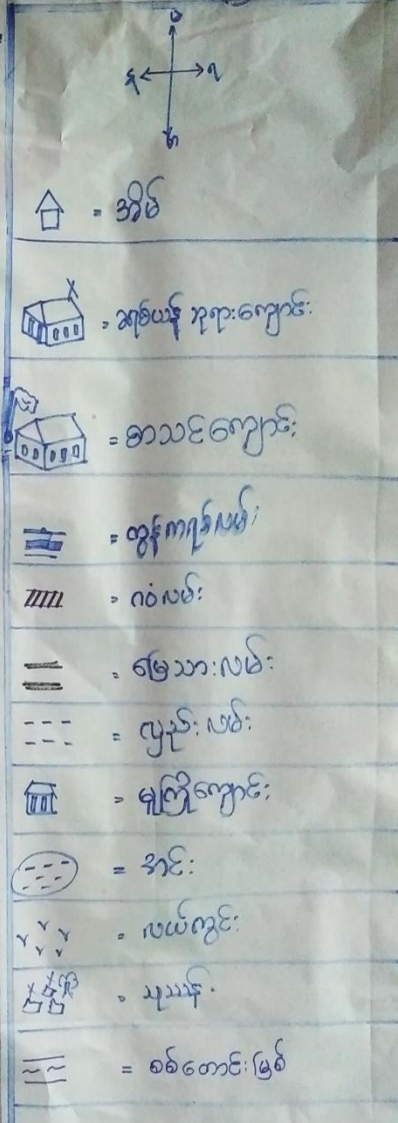 = အိမ်
= ခရစ်ယာန် ဘုရားကျောင်း
= စာသင်ကျောင်း
= ကွန်ကရစ်လမ်း
= ဂဝံလမ်း
= မြေသားလမ်း
= လှည်းလမ်း
= မူကြိုကျောင်း
= အင်း
= လယ်ကွင်း
= သုသာန်
= စစ်တောင်းမြစ်